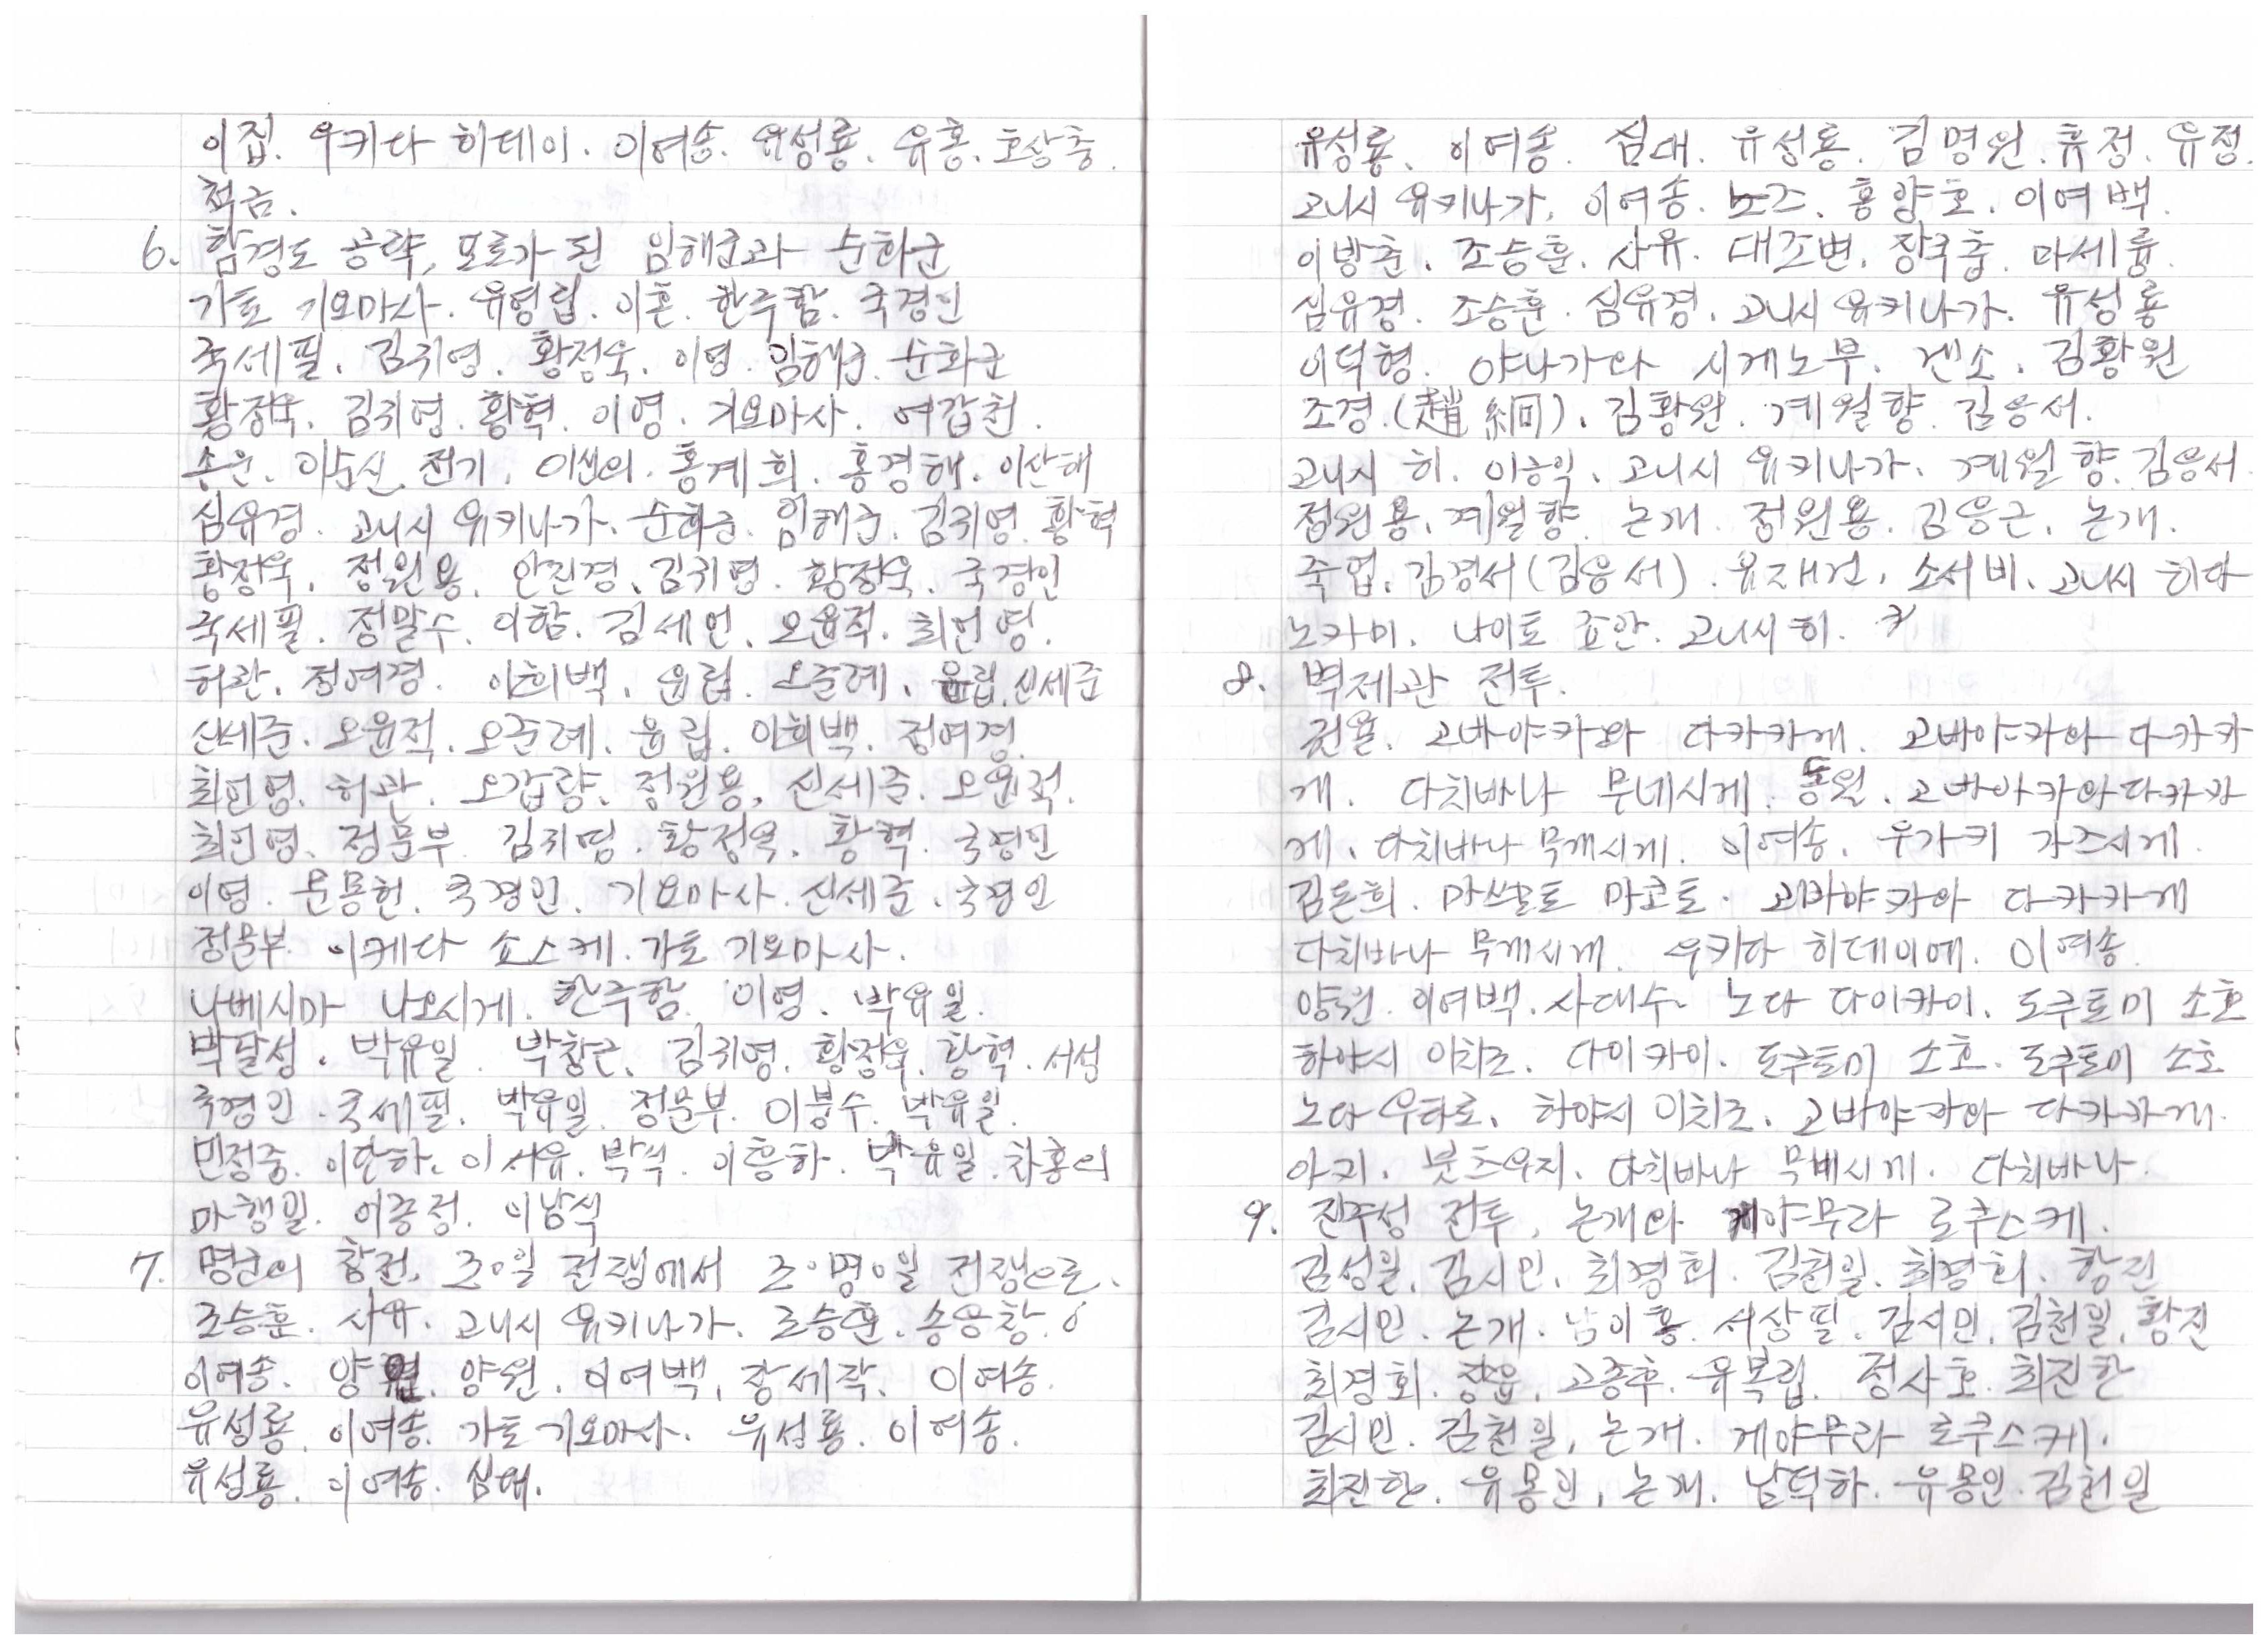 이집. 우키다 히데이. 이여송. 유성룡. 유홍. 호상충.
척금.
6. 함경도 공략, 포로가 된 임해군과 순화군
가토 기요마사. 유영립. 이혼. 한극함. 국경인
국세필. 김귀영. 황정욱. 이영. 임해군. 순화군
황정욱. 김귀영. 황혁. 이영. 기요마사. 여갑천.
송운. 이순신. 전기. 이선의. 홍계희. 홍경해. 이산해
심유경. 고니시 유키나가. 순화군. 임해군. 김귀영. 황혁
황정욱. 정원용. 안진경. 김귀영. 황정욱. 국경인
국세필. 정말수. 이함. 김세언. 오윤적. 최언영.
허관. 정여경. 이희백. 윤립. 오준례. 윤립. 신세준
신세준. 오윤적. 오준례. 윤립. 이희백. 정여경.
최언영. 허관. 오갑량. 정원용. 신세준. 오윤적.
최언영. 정문부. 김귀영. 황정욱. 황혁. 국경인
이영. 문몽헌. 국경인. 기요마사. 신세준. 국경인
정문부. 이케다 소스케. 가토 기요마사.
나베시마 나오시게. 한극함. 이영. 박유일.
박달성. 박유일. 박창근. 김귀영. 황정욱. 황혁. 서성
국경인. 국세필. 박유일. 정문부. 이붕수. 박유일.
민정중. 이단하. 이서유. 박식. 이흥하. 박유일. 차홍의
마행일. 어중정. 이남식
7. 명군의 참전, 조·일 전쟁에서 조·명·일 전쟁으로.
조승훈. 사유. 고니시 유키나가. 조승훈. 송응창.
이여송. 양원. 이여백. 장세작. 이여송.
유성룡. 이여송. 가토 기요마사. 유성룡. 이여송.
유성룡. 이여송. 심대.
유성룡. 이여송. 심대. 유성룡. 김명원. 휴정. 유정.
고니시 유키나가. 이여송. 노즈. 홍양호. 이여백.
이방춘. 조승훈. 사유. 대조변. 장국충. 마세륭.
심유경. 조승훈. 심유경. 고니시 유키나가. 유성룡
이덕형. 야나가와 시게노부. 겐소. 김황원
조경.(趙絅). 김황원. 계월향. 김응서.
고니시 히. 이승익. 고니시 유키나가. 계월향. 김응서
정원용. 계월향. 논개. 정원용. 김응근. 논개.
죽엽. 김경서(김응서). 유재건. 소서비. 고니시 히다
노카미. 나이토 죠안. 고니시 히.
8. 벽제관 전투.
권율. 고바야카와 다카카게. 고바야카와 다카카
게. 다치바나 무네시게. 동월. 고바야카와 다카카
게. 다치바나 무네시게. 이여송. 우가키 가즈시게.
김돈희. 마쓰모토 마코토. 고바야카와 다카카게
다치바나 무네시게. 우키다 히데이에. 이여송.
양원. 이여백. 사대수. 노다 다이카이. 도쿠토미 소호
하야시 이치조. 다이카이. 도쿠토미 소호. 도쿠토미 소호
노다 우타로. 하야시 이치조. 고바야카와 다카카게.
아키. 분츠우지. 다치바나 무네시게. 다치바나.
9. 진주성 전투, 논개와 게야무라 로쿠스케.
김성일. 김시민. 최경회. 김천일. 최경회. 황진
김시민. 논개. 남이흥. 서상필. 김시민. 김천일. 황진
최경회. 장윤. 고종후. 유복립. 정사호. 최진한
김시민. 김천일. 논개. 게야무라 로쿠스케.
최진한. 유몽인. 논개. 남덕하. 유몽인. 김천일